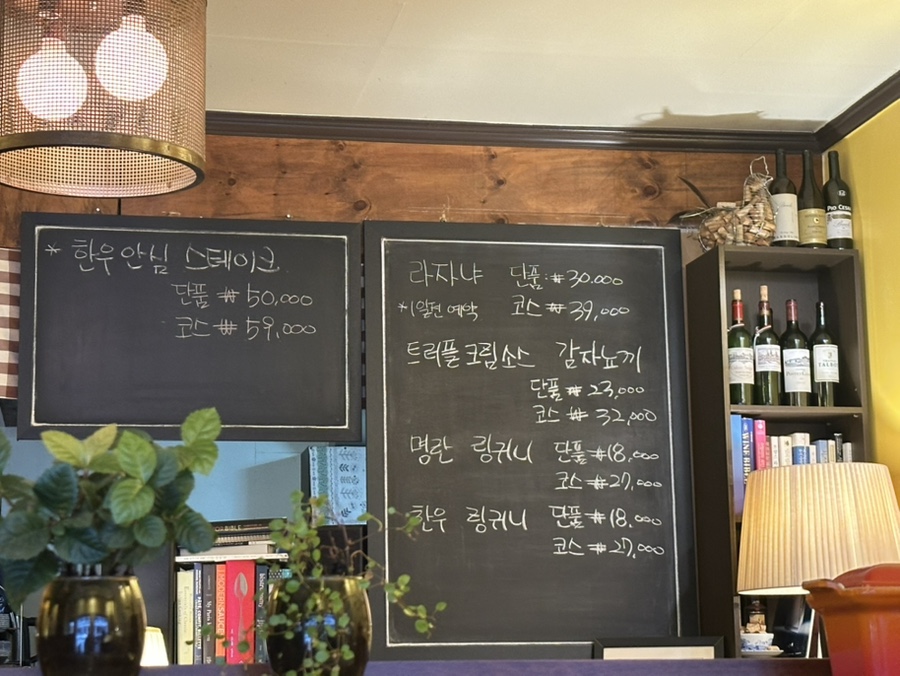 * 한우 안심 스테이크
단품 ₩ 50,000
코스 ₩ 59,000
라자냐 단품 ₩30.000
*1일전 예약 코스 ₩ 39,000
트러플 크림소스 감자뇨끼
단품 ₩ 23,000
코스 ₩ 32,000
명란 링귀니 단품 ₩18,000
코스 ₩27,000
한우 링귀니 단품 ₩18,000
코스 ₩27,000
PIO CESARE
TALBOT
WINE BIBLE